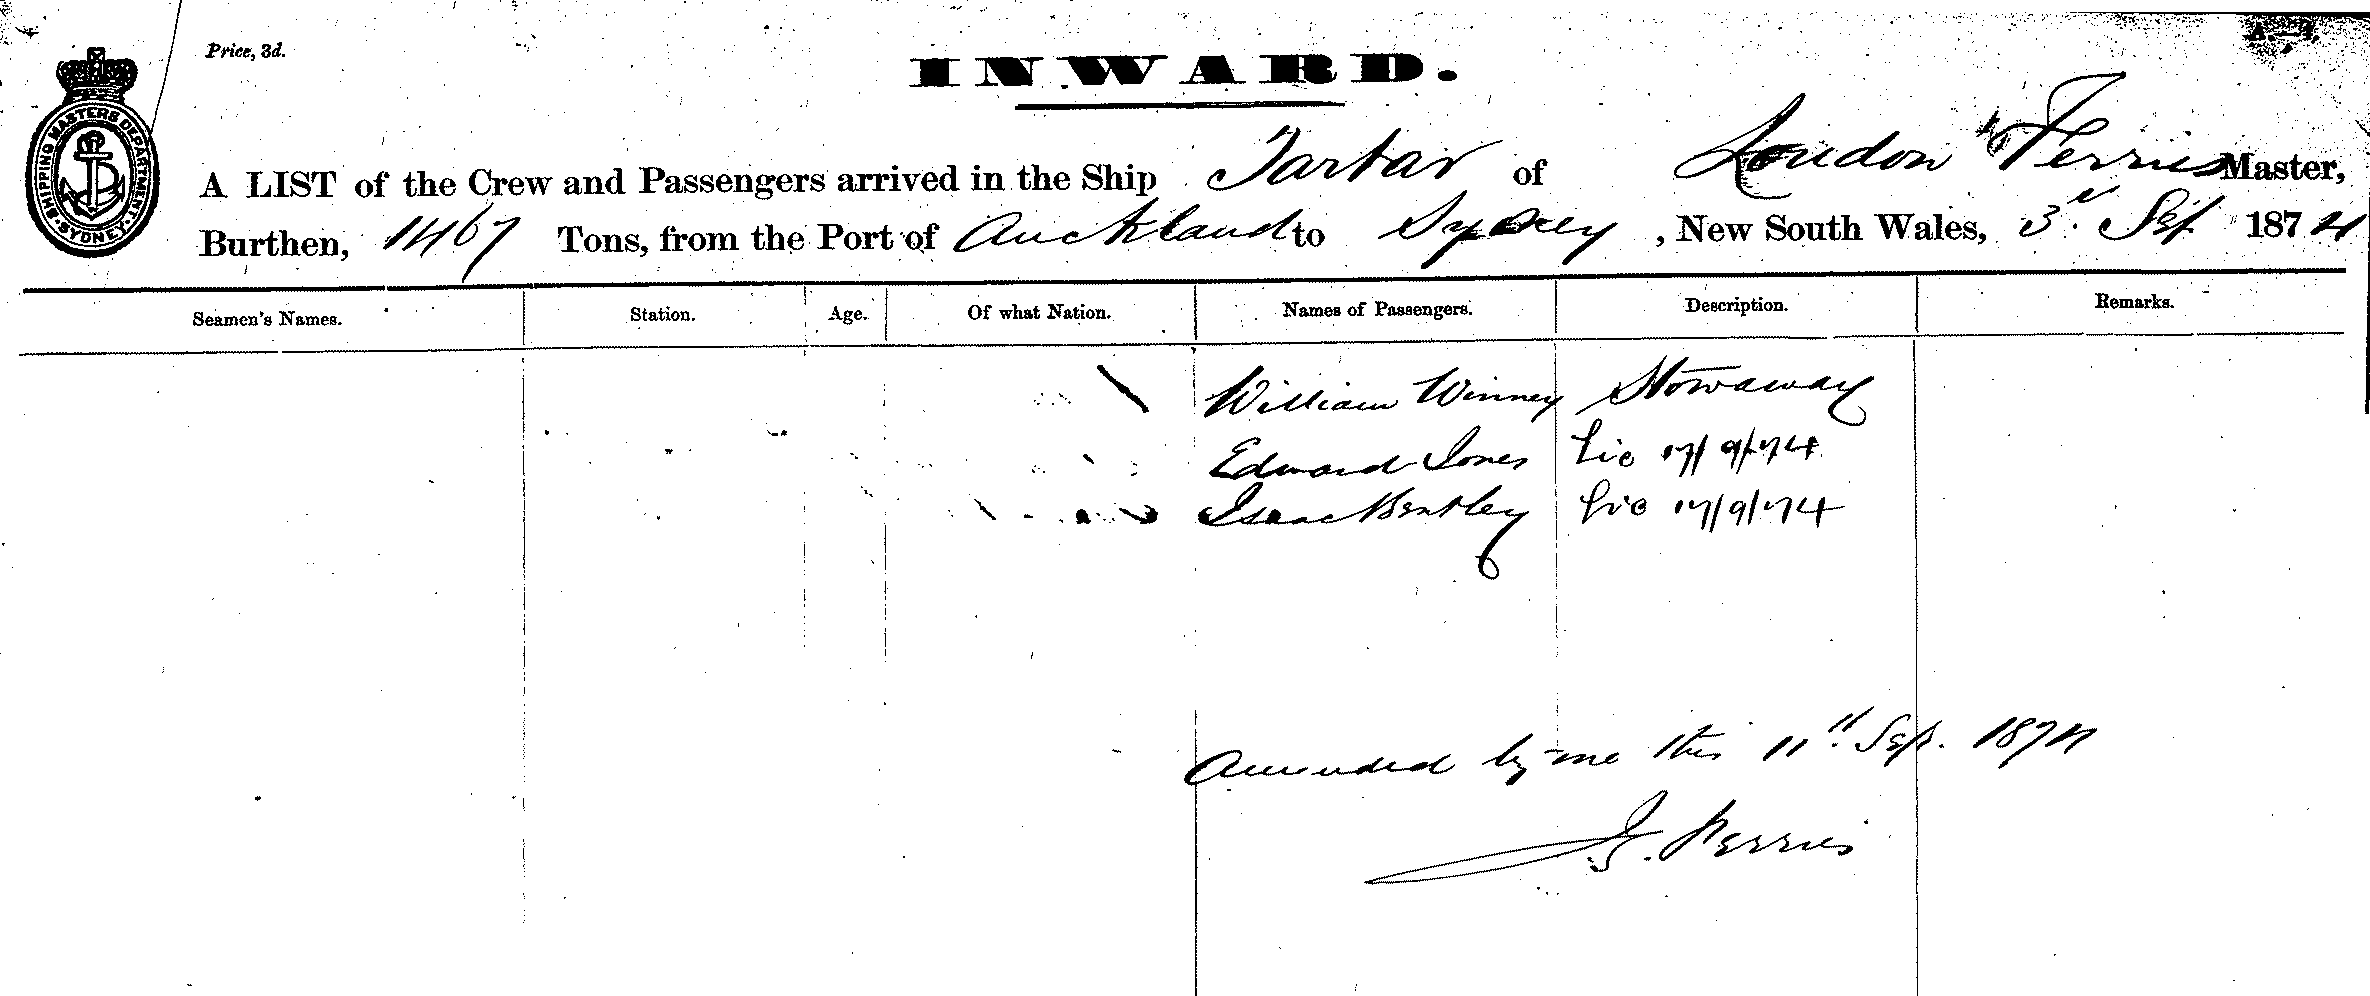 Price, 3d.
INWARD.
SHIPPING MASTERS DEPARTMENT. SYDNEY
A LIST of the Crew and Passengers arrived in the Ship Tartar of London Ferries Master,
Burthen, 1467 Tons, from the Port of Auckland to Sydney, New South Wales, 3rd Sep 1874
Seamen's Names. Station. Age. Of what Nation. Names of Passengers. Description. Remarks.
William Winney Stowaway
Edward Jones 17/9/74
Isaac Bentley 17/9/74
Amended by me this 11th Sep. 1874
J. Ferries